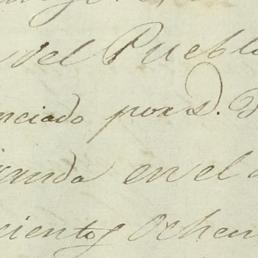 del Pueblo
nciado por D. D
anda en el
ciento y Ochen